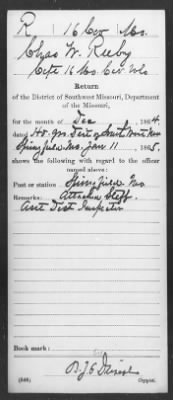 R 16 Cav Mo.
Chas W. Rubey
Capt 16 Mo. Cav Vols
Return
of the District of Southwest Missouri, Department
of the Missouri,
for the month of Dec , 1864.
dated Hd. Qrs. Dist of South West Mo
Springfield Mo. Jan 11 , 1865.
shows the following with regard to the officer
named above:
Post or station: Springfield Mo
Remarks: Attached Staff.
Asst Dist Inspector
Book mark:
(546) Copyist.